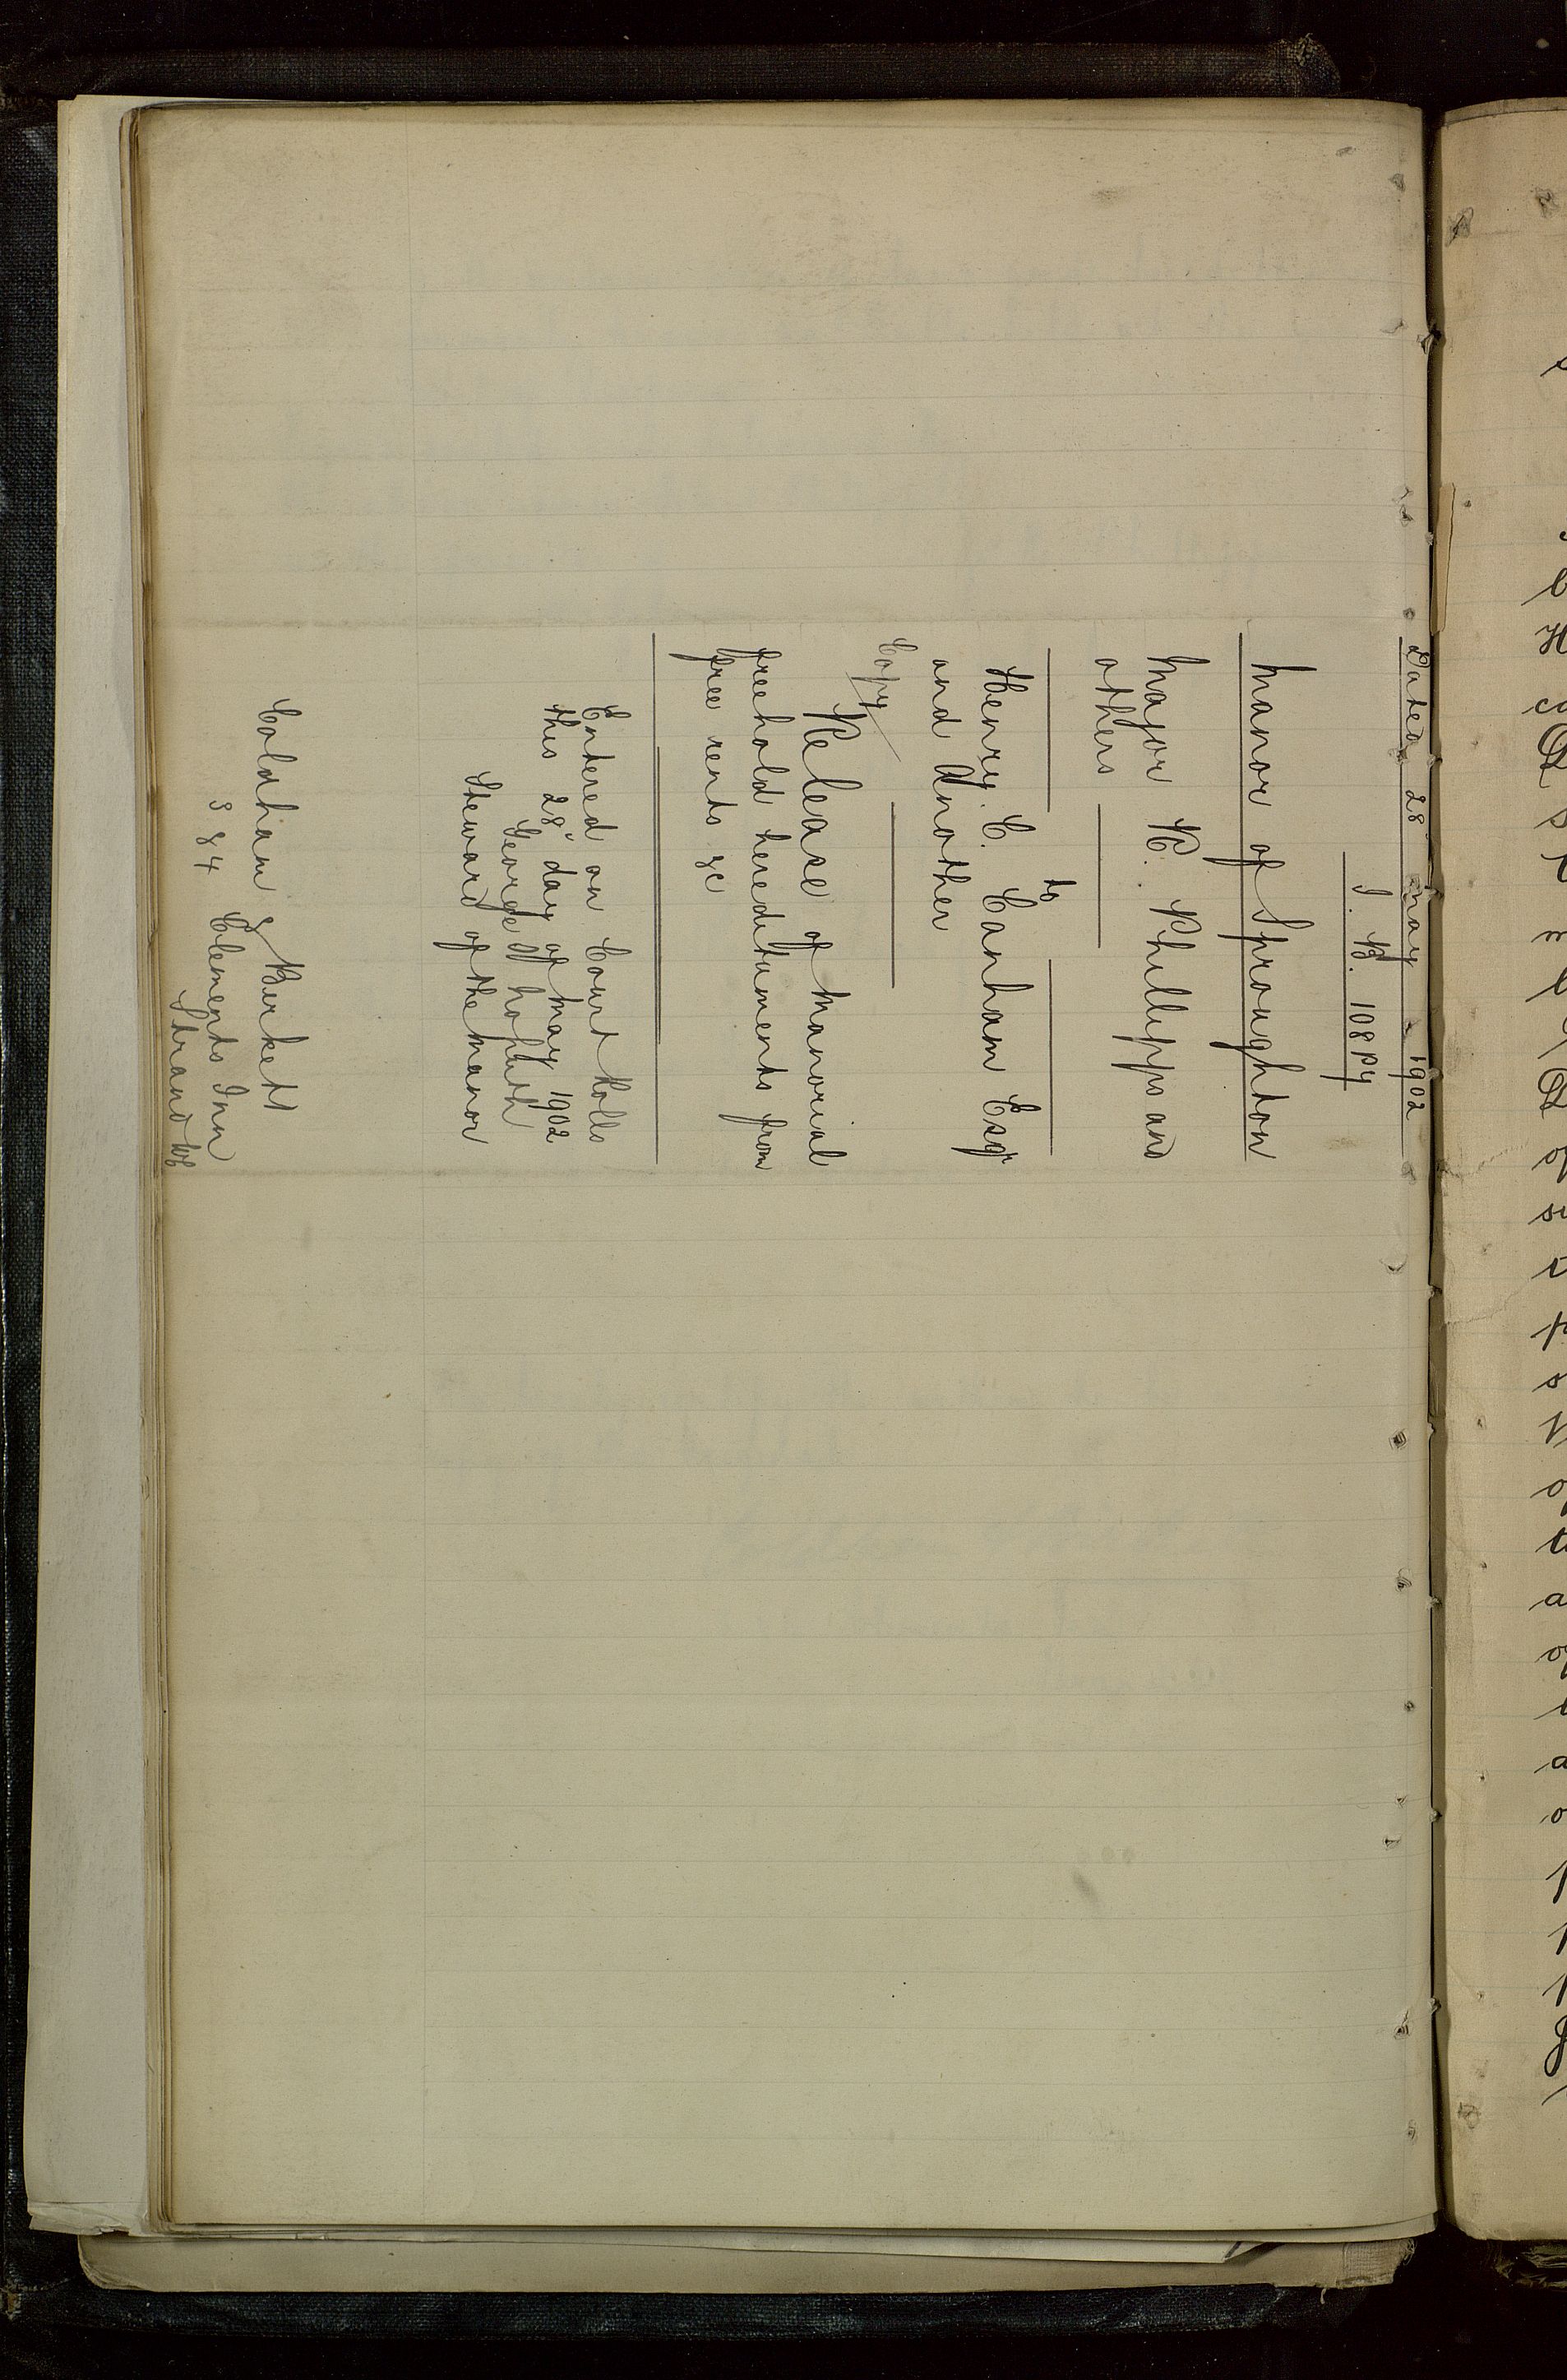 Dated 28 May 1902
I. B. 108 py
Manor of Sproughton
Major B. Phillipps and
others
to
Henry. C. Canham Esqr
and Another
Copy
Release of Manorial
freehold hereditaments from
free rents &c
Entered on Court Rolls
this 28 day of May 1902
George
Steward of the Manor
Coldham & Birkett
3 & 4 Clements Inn
Strand WC